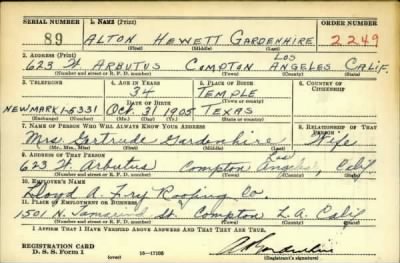 SERIAL NUMBER 1. NAME (Print) ORDER NUMBER
89 ALTON HEWETT GARDENHIRE 2249
(First) (Middle) (Last)
2. ADDRESS (Print) LOS
623 N. ARBUTUS COMPTON ANGELES CALIF.
(Number and street or R. F. D. number) (Town) (County) (State)
3. TELEPHONE 4. AGE IN YEARS 5. PLACE OF BIRTH 6. COUNTRY OF CITIZENSHIP
34 TEMPLE
DATE OF BIRTH (Town or county)
NEWMARK 1-5331 Oct. 31 1905 TEXAS
(Exchange) (Number) (Mo.) (Day) (Yr.) (State or country)
7. NAME OF PERSON WHO WILL ALWAYS KNOW YOUR ADDRESS 8. RELATIONSHIP OF THAT PERSON
Mrs. Gertrude Gardenhire Wife
(Mr., Mrs., Miss) (First) (Middle) (Last)
9. ADDRESS OF THAT PERSON Los
623 N. Arbutus Compton Angeles, Calif.
(Number and street or R. F. D. number) (Town) (County) (State)
10. EMPLOYER'S NAME
Lloyd A. Fry Roofing Co.
11. PLACE OF EMPLOYMENT OR BUSINESS
1501 N. Tamarind St. Compton L.A. Calif
(Number and street or R. F. D. number) (Town) (County) (State)
I AFFIRM THAT I HAVE VERIFIED ABOVE ANSWERS AND THAT THEY ARE TRUE.
REGISTRATION CARD
D. S. S. Form 1 (over) 16—17105 (Registrant's signature)